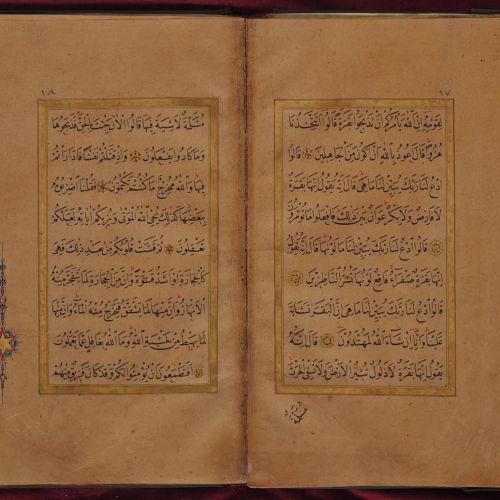 ١٧
لِقَوْمِهِ اِنَّ اللّٰهَ يَأْمُرُكُمْ اَنْ تَذْبَحُوا بَقَرَةً قَالُوا اَتَتَّخِذُنَا
هُزُوًا قَالَ اَعُوذُ بِاللّٰهِ اَنْ اَكُونَ مِنَ الْجَاهِلِينَ قَالُوا
ادْعُ لَنَا رَبَّكَ يُبَيِّنْ لَنَا مَا هِيَ قَالَ اِنَّهُ يَقُولُ اِنَّهَا بَقَرَةٌ
لَا فَارِضٌ وَلَا بِكْرٌ عَوَانٌ بَيْنَ ذٰلِكَ فَافْعَلُوا مَا تُؤْمَرُونَ
قَالُوا ادْعُ لَنَا رَبَّكَ يُبَيِّنْ لَنَا مَا لَوْنُهَا قَالَ اِنَّهُ يَقُولُ
اِنَّهَا بَقَرَةٌ صَفْرَاءُ فَاقِعٌ لَوْنُهَا تَسُرُّ النَّاظِرِينَ
قَالُوا ادْعُ لَنَا رَبَّكَ يُبَيِّنْ لَنَا مَا هِيَ اِنَّ الْبَقَرَ تَشَابَهَ
عَلَيْنَا وَاِنَّا اِنْ شَاءَ اللّٰهُ لَمُهْتَدُونَ قَالَ اِنَّهُ
يَقُولُ اِنَّهَا بَقَرَةٌ لَا ذَلُولٌ تُثِيرُ الْاَرْضَ وَلَا تَسْقِي الْحَرْثَ
مسلمة
١٨
مُسَلَّمَةٌ لَا شِيَةَ فِيهَا قَالُوا الْآنَ جِئْتَ بِالْحَقِّ فَذَبَحُوهَا
وَمَا كَادُوا يَفْعَلُونَ وَاِذْ قَتَلْتُمْ نَفْسًا فَادَّارَأْتُمْ
فِيهَا وَاللّٰهُ مُخْرِجٌ مَا كُنْتُمْ تَكْتُمُونَ فَقُلْنَا اضْرِبُوهُ
بِبَعْضِهَا كَذٰلِكَ يُحْيِي اللّٰهُ الْمَوْتٰى وَيُرِيكُمْ آيَاتِهِ لَعَلَّكُمْ
تَعْقِلُونَ ثُمَّ قَسَتْ قُلُوبُكُمْ مِنْ بَعْدِ ذٰلِكَ فَهِيَ
كَالْحِجَارَةِ اَوْ اَشَدُّ قَسْوَةً وَاِنَّ مِنَ الْحِجَارَةِ لَمَا يَتَفَجَّرُ مِنْهُ
الْاَنْهَارُ وَاِنَّ مِنْهَا لَمَا يَشَّقَّقُ فَيَخْرُجُ مِنْهُ الْمَاءُ وَاِنَّ مِنْهَا
لَمَا يَهْبِطُ مِنْ خَشْيَةِ اللّٰهِ وَمَا اللّٰهُ بِغَافِلٍ عَمَّا تَعْمَلُونَ
اَفَتَطْمَعُونَ اَنْ يُؤْمِنُوا لَكُمْ وَقَدْ كَانَ فَرِيقٌ مِنْهُمْ